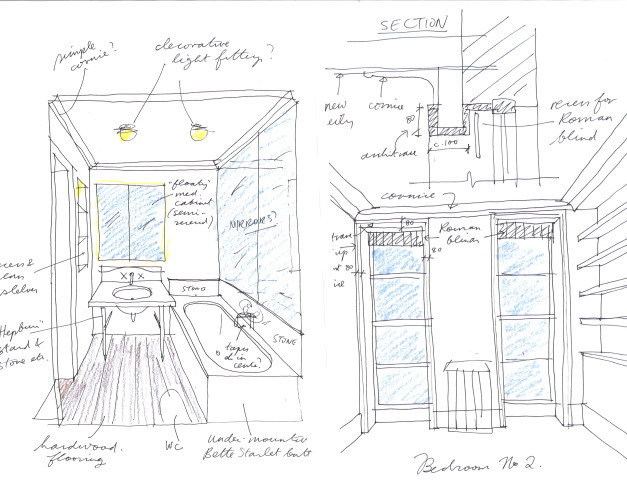 simple
cornice?
decorative
light fitting?
"floaty"
med.
cabinet
(semi-
recessed)
MIRRORS?
STONE
STONE
taps
d in
centre?
recess &
glass
shelves
"Hepburn"
stand &
stone etc.
hardwood
flooring
WC
under-mounted
Bette Starlet bath
SECTION
new
cornice
80
architrave
c.100
recess for
Roman
blind
cornice
80
Roman
blinds
80
up
Bedroom No 2.